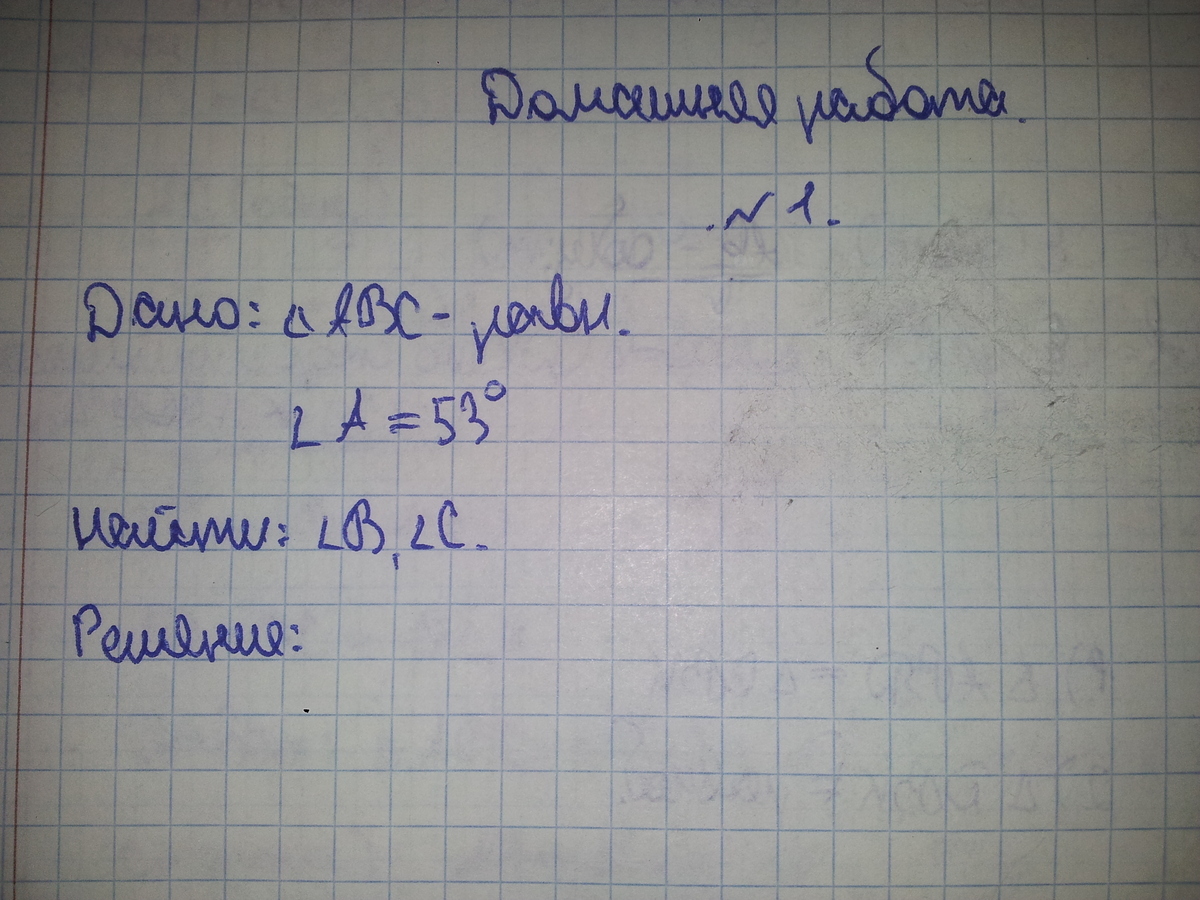 Домашняя работа.
№ 1.
Дано: △ABC - равн.
∠A = 53°
Найти: ∠B, ∠C.
Решение: